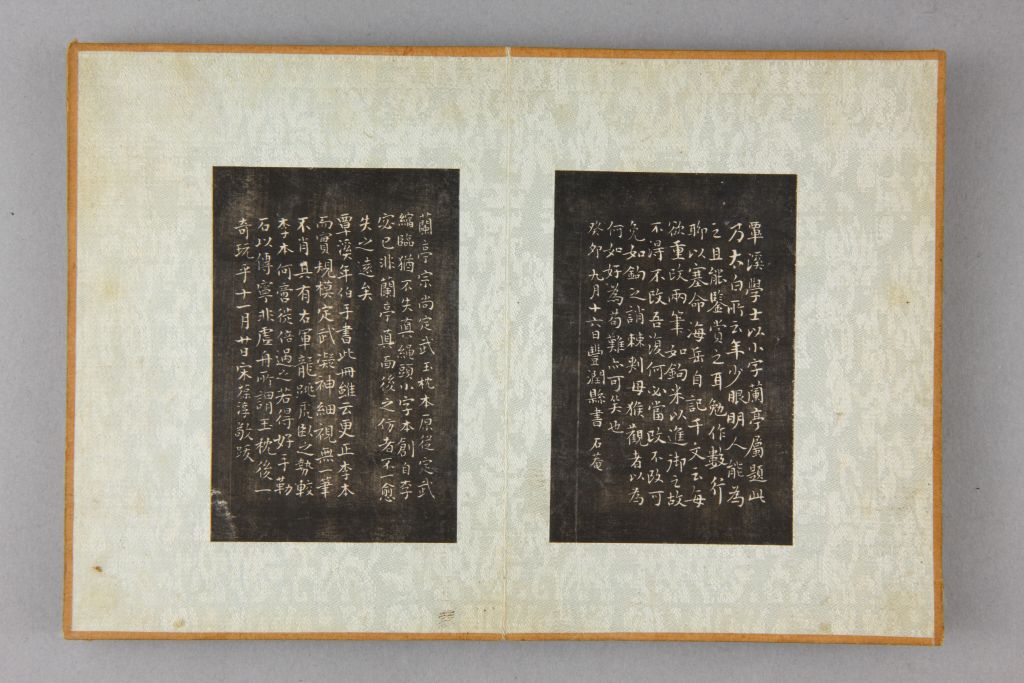 覃溪學士以小字蘭亭屬題此
乃太白所云年少眼明人能為
之且能鑒賞之耳勉作數行
聊以塞命海岳自記千文云每
欲重改兩筆如鉤米以進御之故
不得不改吾復何必當改不改可
免如鉤之誚棘刺母猴觀者以為
何如好為苟難亦可笑也
癸卯九月十六日豐潤縣書 石菴
蘭亭宗尚定武玉枕本原從定武
縮臨猶不失真蠅頭小字本創自李
宓已非蘭亭真面後之仿者不一愈
失之遠矣
覃溪年伯手書此冊雖云更正李本
而實規模定武凝神細視無一筆
不肖具有右軍龍跳虎臥之勢較
李本何啻徙倍過之若得好手勒
石以傳寧非虛舟所謂玉枕後一
奇玩乎十月廿日宋葆淳敬跋